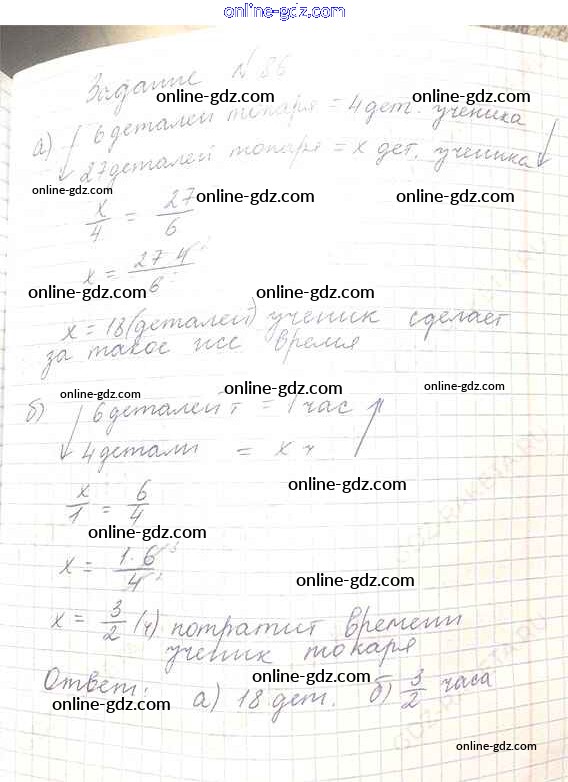 online-gdz.com
Задание №86
online-gdz.com online-gdz.com
а) 6 деталей токаря = 4 дет. ученика
27 деталей токаря = x дет. ученика
online-gdz.com online-gdz.com
x/4 = 27/6
x = 27 4/6
online-gdz.com online-gdz.com
x = 18 (деталей) ученик сделает
за такое же время
online-gdz.com online-gdz.com online-gdz.com
б) 6 деталей т = 1 час
4 детали = x ч
online-gdz.com
x/1 = 6/4
online-gdz.com
x = 1·6/4
online-gdz.com
x = 3/2 (ч) потратит времени
ученик токаря
online-gdz.com online-gdz.com
Ответ: а) 18 дет. б) 3/2 часа
online-gdz.com
online-gdz.com